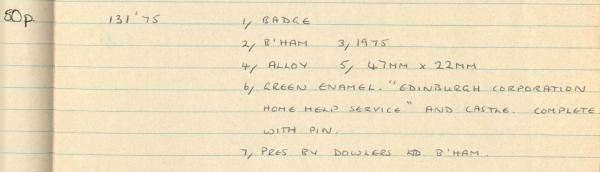 50p. 131'75 1, BADGE
2, B'HAM 3, 1975
4, ALLOY 5, 47MM x 22MM
6, GREEN ENAMEL. "EDINBURGH CORPORATION
HOME HELP SERVICE" AND CASTLE. COMPLETE
WITH PIN.
7, PRES BY DOWLERS LTD B'HAM.